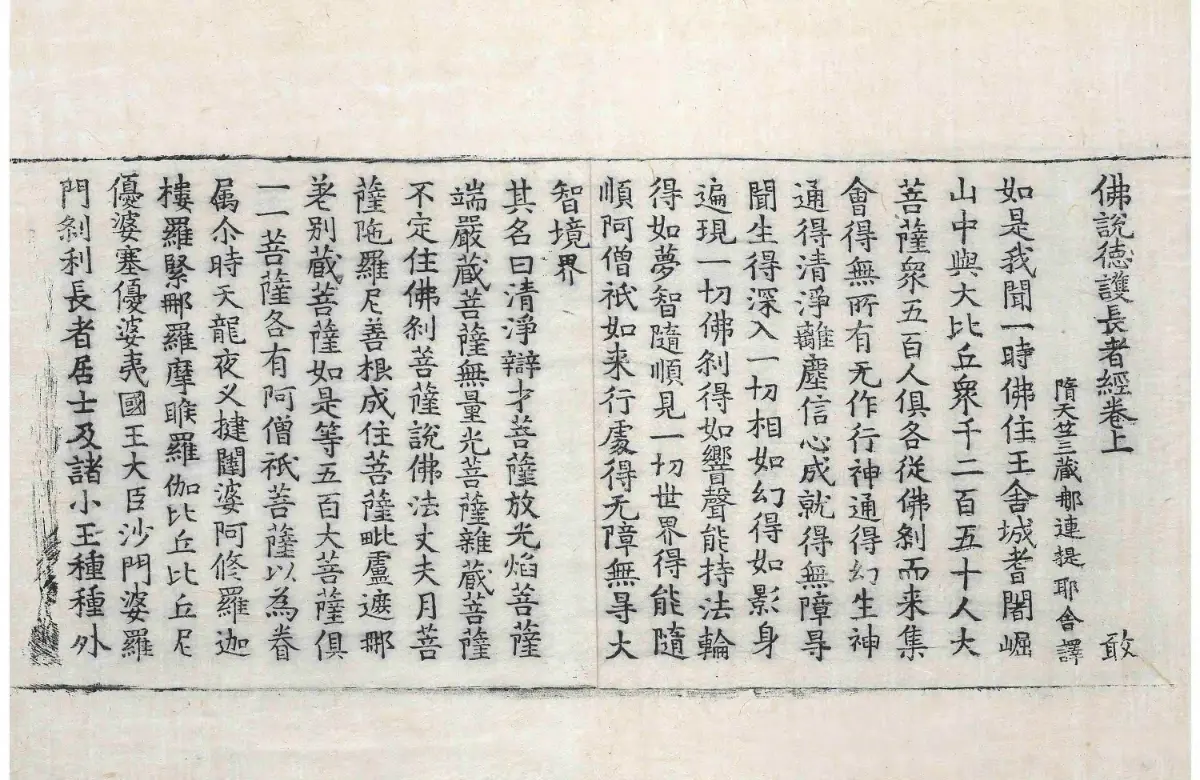 佛說德護長者經卷上 敢
隋天竺三藏那連提耶舍譯
如是我聞一時佛住王舍城耆闍崛
山中與大比丘衆千二百五十人大
菩薩衆五百人俱各從佛剎而来集
會得無所有无作行神通得幻生神
通得清淨離塵信心成就得無障㝵
聞生得深入一切相如幻得如影身
遍現一切佛剎得如響聲能持法輪
得如夢智隨順見一切世界得能隨
順阿僧祇如来行處得无障無㝵大
智境界
其名曰清淨辯才菩薩放光焰菩薩
端嚴蔵菩薩無量光菩薩雜蔵菩薩
不定住佛剎菩薩說佛法丈夫月菩
薩陁羅尼善根成住菩薩毗盧遮那
差别蔵菩薩如是等五百大菩薩俱
一一菩薩各有阿僧祇菩薩以為眷
属尒時天龍夜叉揵闥婆阿修羅迦
樓羅緊那羅摩睺羅伽比丘比丘尼
優婆塞優婆夷國王大臣沙門婆羅
門剎利長者居士及諸小王種種外